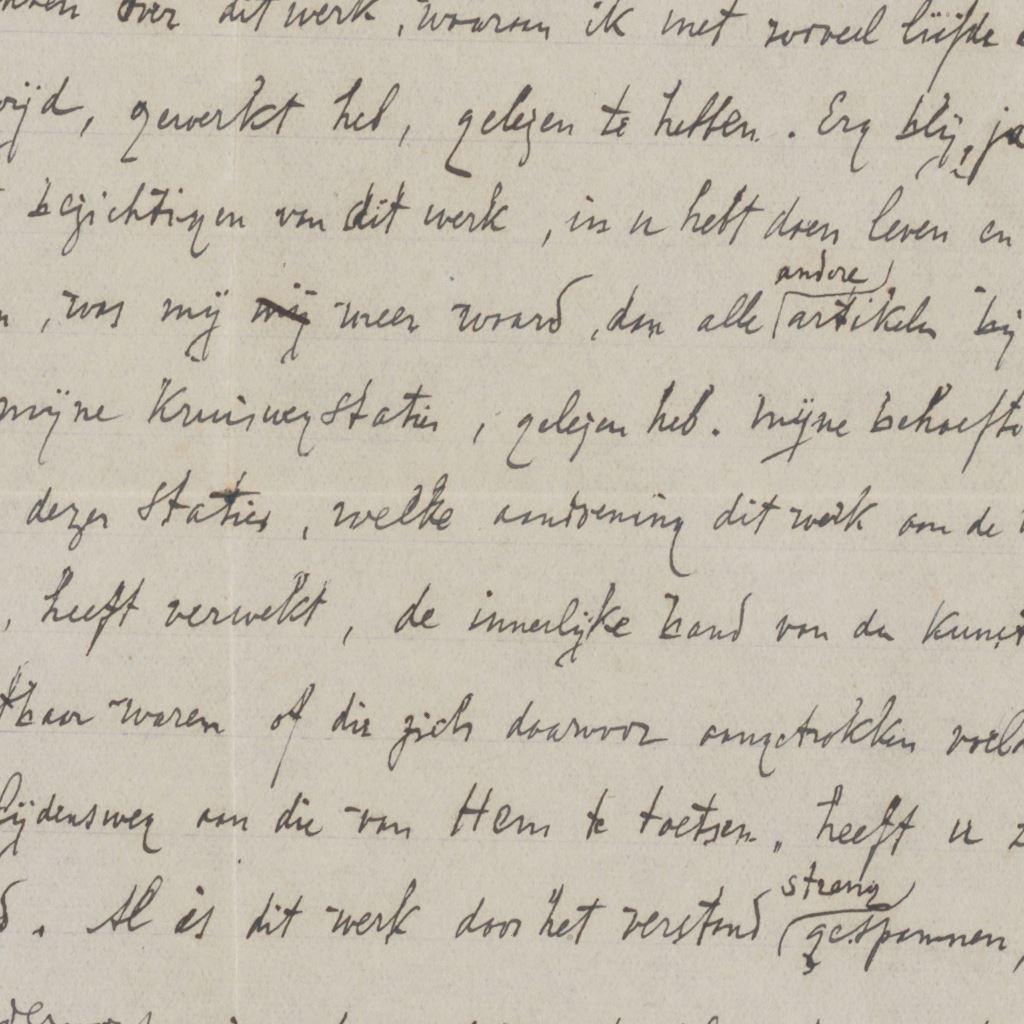 over dit werk, waaraan ik met zooveel liefde
gewerkt heb, gelezen te hebben. Erg blij, ja
bezichtigen van dit werk, in u hebt doen leven en
, was mij mij meer waard, dan alle andere artikelen bij
mijne Kruisweg Staties, gelezen heb. Mijne behoefte
dezer Staties, welke aandoening dit werk aan de
, heeft verwekt, de innerlijke band van de Kunst
tbaar waren of die zich daarvoor aangetrokken voel
Lijdensweg aan die van Hem te toetsen, heeft u z
. Al is dit werk door het verstand streng gespannen,